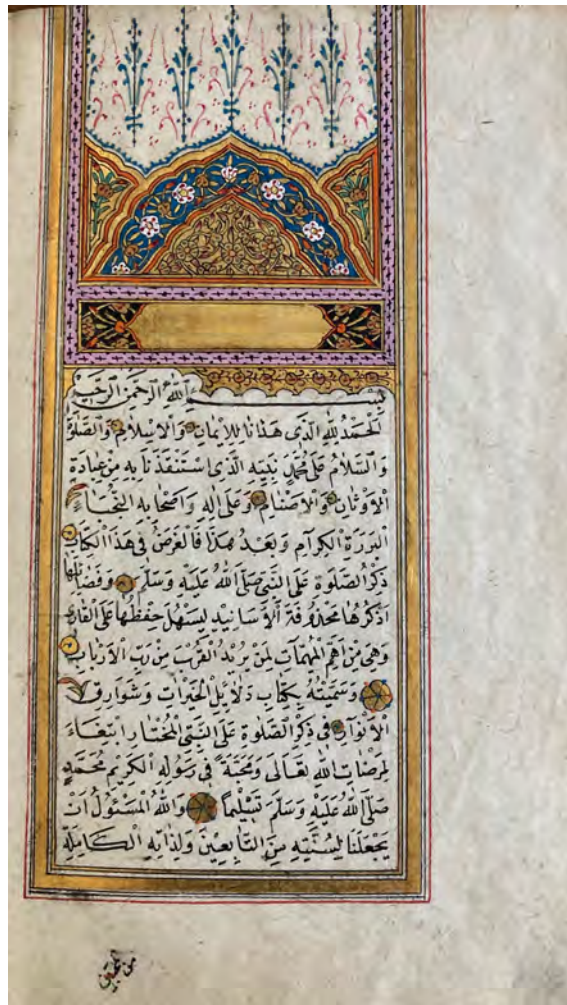 بِسْــــمِ اللهِ الرَّحْمٰنِ الرَّحِيمِ
اَلْحَمْدُ لِلّٰهِ الَّذِى هَدَانَا لِلْاِيْمَانِ وَالْاِسْلَامِ وَالصَّلٰوةُ
وَالسَّلَامُ عَلٰى مُحَمَّدٍ نَبِيِّهِ الَّذِى اسْتَنْقَذَنَا بِهِ مِنْ عِبَادَةِ
الْاَوْثَانِ وَالْاَصْنَامِ وَعَلٰى اٰلِهِ وَاَصْحَابِهِ النُّجَبَاءِ
الْبَرَرَةِ الْكِرَامِ وَبَعْدُ هٰذَا فَالْغَرَضُ فِى هٰذَا الْكِتَابِ
ذِكْرُ الصَّلٰوةِ عَلَى النَّبِىِّ صَلَّى اللهُ عَلَيْهِ وَسَلَّمَ وَفَضَائِلُهَا
اَذْكُرُهَا مَحْذُوفَةَ الْاَسَانِيدِ لِيَسْهُلَ حِفْظُهَا عَلَى الْقَارِى
وَهِىَ مِنْ اَهَمِّ الْمُهِمَّاتِ لِمَنْ يُرِيدُ الْقُرْبَ مِنْ رَبِّ الْاَرْبَابِ
وَسَمَّيْتُهُ بِكِتَابِ دَلَايِلِ الْخَيْرَاتِ وَشَوَارِقِ
الْاَنْوَارِ فِى ذِكْرِ الصَّلٰوةِ عَلَى النَّبِىِّ الْمُخْتَارِ ابْتِغَاءً
لِمَرْضَاتِ اللهِ تَعَالٰى وَمَحَبَّةً فِى رَسُولِهِ الْكَرِيمِ مُحَمَّدٍ
صَلَّى اللهُ عَلَيْهِ وَسَلَّمَ تَسْلِيمًا وَاللهُ الْمَسْئُولُ اَنْ
يَجْعَلَنَا لِسُنَّتِهِ مِنَ التَّابِعِيْنَ وَلِذَاتِهِ الْكَامِلَةِ